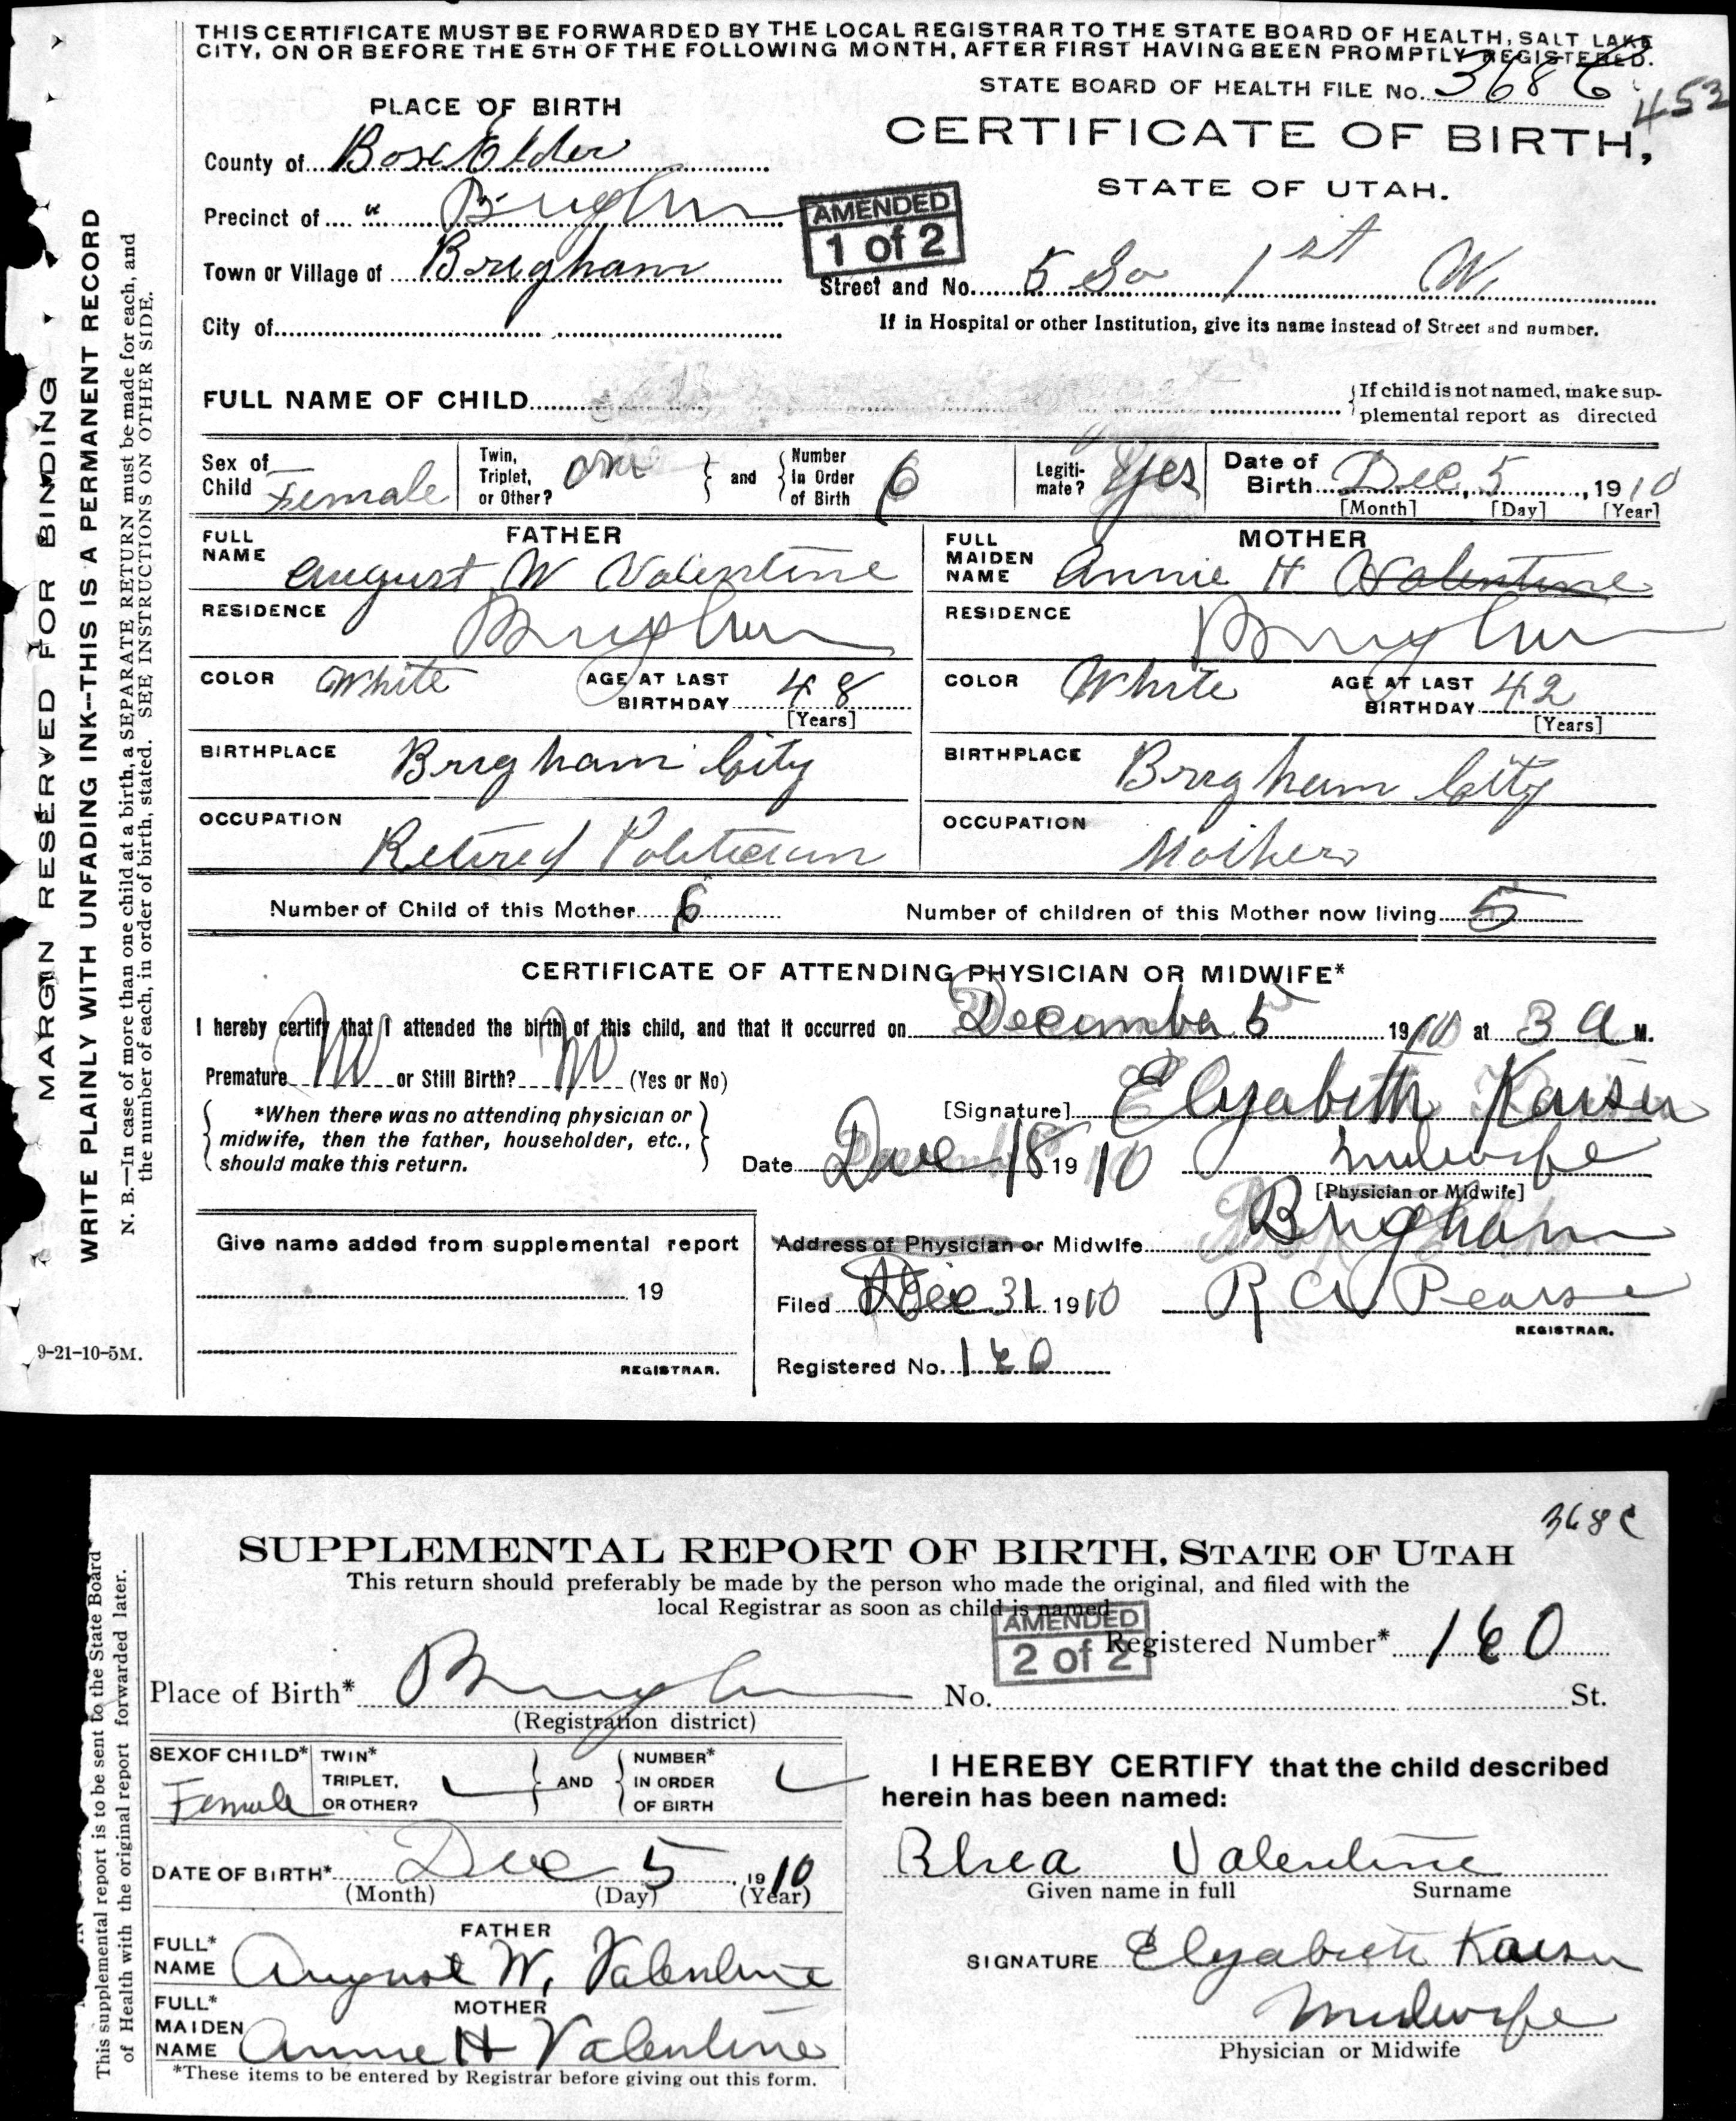 THIS CERTIFICATE MUST BE FORWARDED BY THE LOCAL REGISTRAR TO THE STATE BOARD OF HEALTH, SALT LAKE
CITY, ON OR BEFORE THE 5TH OF THE FOLLOWING MONTH, AFTER FIRST HAVING BEEN PROMPTLY REGISTERED.
STATE BOARD OF HEALTH FILE No. 368 C 453
PLACE OF BIRTH
CERTIFICATE OF BIRTH,
STATE OF UTAH.
County of Box Elder
Precinct of " Brigham
AMENDED
1 of 2
Town or Village of Brigham
Street and No. 5 So 1st W.
City of
If in Hospital or other Institution, give its name instead of Street and number.
FULL NAME OF CHILD
If child is not named, make sup-
plemental report as directed
Sex of Child Female
Twin, Triplet, or Other? one and Number in Order of Birth 6
Legiti-mate? Yes
Date of Birth Dec, 5, 1910
[Month] [Day] [Year]
FATHER
FULL NAME August W Valentine
MOTHER
FULL MAIDEN NAME Annie H Valentine
RESIDENCE Brigham
RESIDENCE Brigham
COLOR White AGE AT LAST BIRTHDAY 48 [Years]
COLOR White AGE AT LAST BIRTHDAY 42 [Years]
BIRTHPLACE Brigham City
BIRTHPLACE Brigham City
OCCUPATION Retired Politician
OCCUPATION Mother
Number of Child of this Mother 6 Number of children of this Mother now living 5
CERTIFICATE OF ATTENDING PHYSICIAN OR MIDWIFE*
I hereby certify that I attended the birth of this child, and that it occurred on December 5 1910 at 3 A M.
Premature No or Still Birth? No (Yes or No)
*When there was no attending physician or
midwife, then the father, householder, etc.,
should make this return.
[Signature] Elyabeth Kaiser
Date Dec 18 1910 Midwife
[Physician or Midwife]
Address of Physician or Midwife Brigham
Give name added from supplemental report
19
REGISTRAR.
Filed Dec 31 1910 R A Pearse
REGISTRAR.
Registered No. 160
MARGIN RESERVED FOR BINDING
WRITE PLAINLY WITH UNFADING INK--THIS IS A PERMANENT RECORD
N. B.—In case of more than one child at a birth, a SEPARATE RETURN must be made for each, and
the number of each, in order of birth, stated. SEE INSTRUCTIONS ON OTHER SIDE.
9-21-10-5M.
368 C
SUPPLEMENTAL REPORT OF BIRTH, STATE OF UTAH
This return should preferably be made by the person who made the original, and filed with the
local Registrar as soon as child is named.
AMENDED
2 of 2
Registered Number* 160
Place of Birth* Brigham No. St.
(Registration district)
SEX OF CHILD* Female
TWIN* TRIPLET, OR OTHER? AND NUMBER* IN ORDER OF BIRTH
I HEREBY CERTIFY that the child described
herein has been named:
DATE OF BIRTH* Dec 5, 1910
(Month) (Day) (Year)
Rhea Valentine
Given name in full Surname
FATHER
FULL* NAME August W. Valentine
SIGNATURE Elyabeth Kaiser
MOTHER
FULL* MAIDEN NAME Annie H Valentine
Midwife
Physician or Midwife
*These items to be entered by Registrar before giving out this form.
This supplemental report is to be sent to the State Board
of Health with the original report forwarded later.